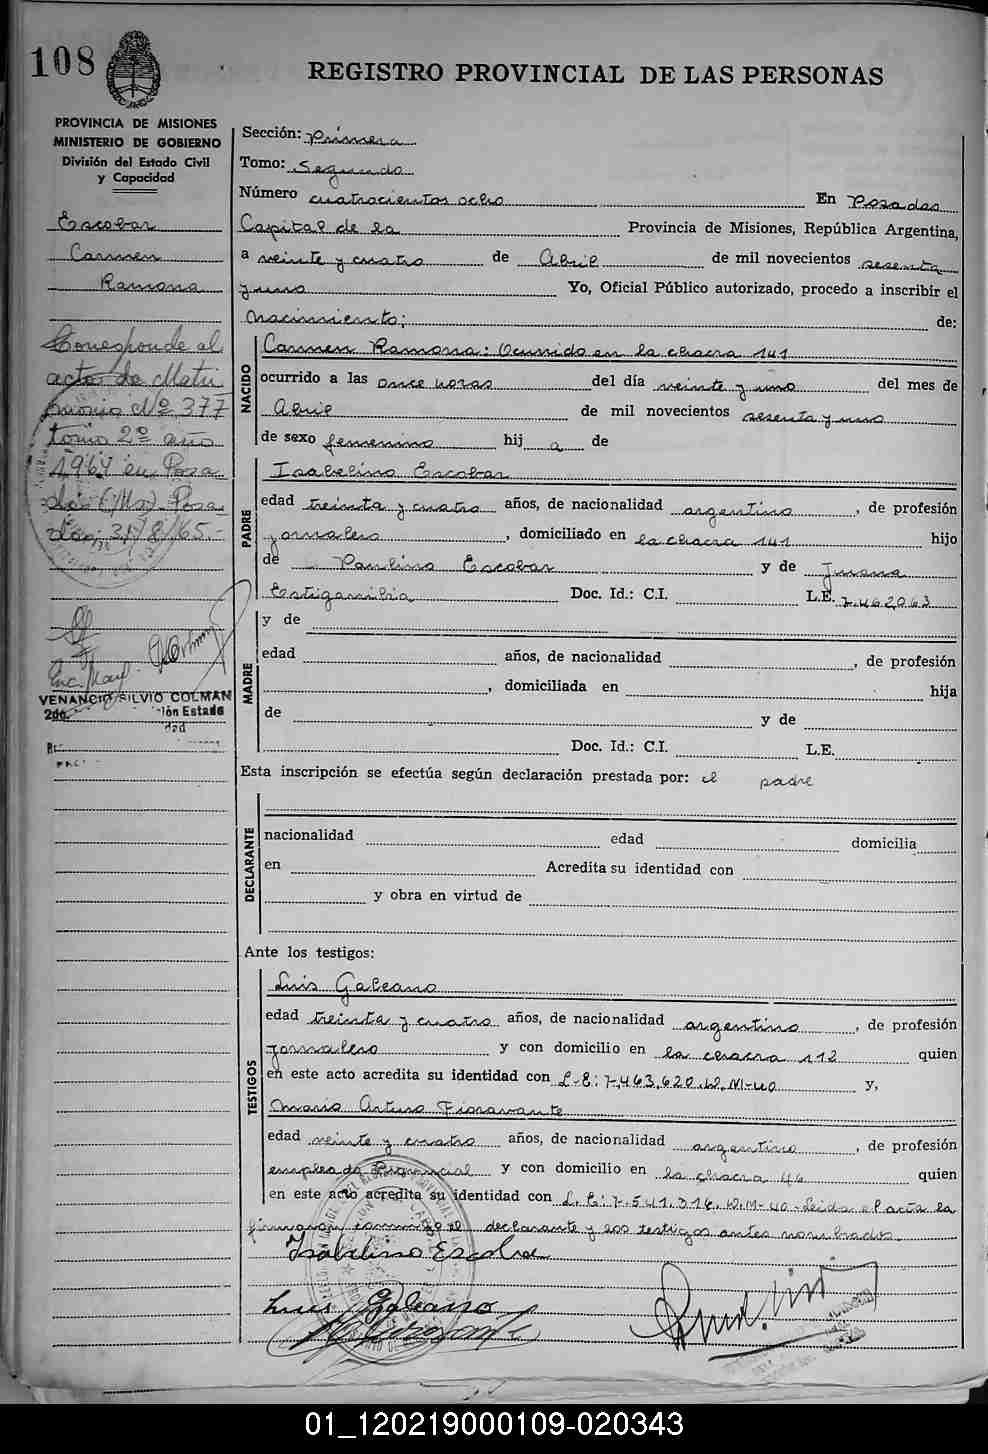 108
REGISTRO PROVINCIAL DE LAS PERSONAS
PROVINCIA DE MISIONES
MINISTERIO DE GOBIERNO
División del Estado Civil
y Capacidad
Escobar
Carmen
Ramona
Corresponde al
acto de Matri
monio Nº 377
tomo 2º año
1964 en Posa
das (Ms). Posa
das, 31/8/65.-
VENANCIO SILVIO COLMAN
2do.
ión Estado
dad
Sección: Primera
Tomo: Segundo
Número cuatrocientos ocho En Posadas
Capital de la Provincia de Misiones, República Argentina,
a veinte y cuatro de Abril de mil novecientos sesenta
y uno Yo, Oficial Público autorizado, procedo a inscribir el
Nacimiento: de:
NACIDO
Carmen Ramona: Ocurrido en la chacra 141
ocurrido a las once horas del día veinte y uno del mes de
Abril de mil novecientos sesenta y uno
de sexo femenino hij a de
PADRE
Isabelino Escobar
edad treinta y cuatro años, de nacionalidad argentino, de profesión
jornalero, domiciliado en la chacra 141 hijo
de Paulino Escobar y de Juana
Estigarribia Doc. Id.: C.I. L.E. 7.462063
MADRE
y de
edad años, de nacionalidad , de profesión
, domiciliada en hija
de y de
Doc. Id.: C.I. L.E.
Esta inscripción se efectúa según declaración prestada por: el padre
DECLARANTE
nacionalidad edad domicilia
en Acredita su identidad con
y obra en virtud de
Ante los testigos:
TESTIGOS
Luis Galeano
edad treinta y cuatro años, de nacionalidad argentino, de profesión
jornalero y con domicilio en la chacra 112 quien
en este acto acredita su identidad con L.E: 7.463.620.D.M-40 y,
Mario Arturo Fioravante
edad veinte y cuatro años, de nacionalidad argentino, de profesión
empleado Provincial y con domicilio en la chacra 46 quien
en este acto acredita su identidad con L.E: 7.541.316.D.M-40-Leida el acta la
firmaron conmigo el declarante y los testigos antes nombrados.
Isabelino Escobar
Luis Galeano
01_120219000109-020343